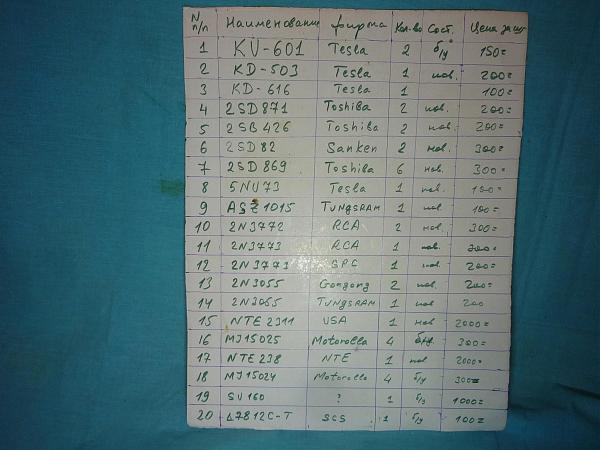 N п/п Наименование фирма Кол-во Сост. Цена за шт
1 KU-601 Tesla 2 б/у 150=
2 KD-503 Tesla 1 нов. 200=
3 KD-616 Tesla 1 100=
4 2SD871 Toshiba 2 нов. 200=
5 2SB426 Toshiba 2 нов. 200=
6 2SD82 Sanken 2 нов. 300=
7 2SD869 Toshiba 6 нов. 300=
8 5NU73 Tesla 1 нов. 100=
9 ASZ1015 TUNGSRAM 1 нов. 100=
10 2N3772 RCA 2 нов. 300=
11 2N3773 RCA 1 нов.
12 2N3773 1 нов. 200=
13 2N3055 Gongong 2 нов 200=
14 2N3055 TUNGSRAM 1 нов 200
15 NTE 2311 USA 1 нов 2000=
16 MJ15025 Motorolla 4 б/у. 300=
17 NTE 238 NTE 1 нов. 2000=
18 MJ15024 Motorolla 4 б/у 300=
19 SU160 ? 1 б/у 1000=
20 L7812C-T SCS 1 б/у 100=